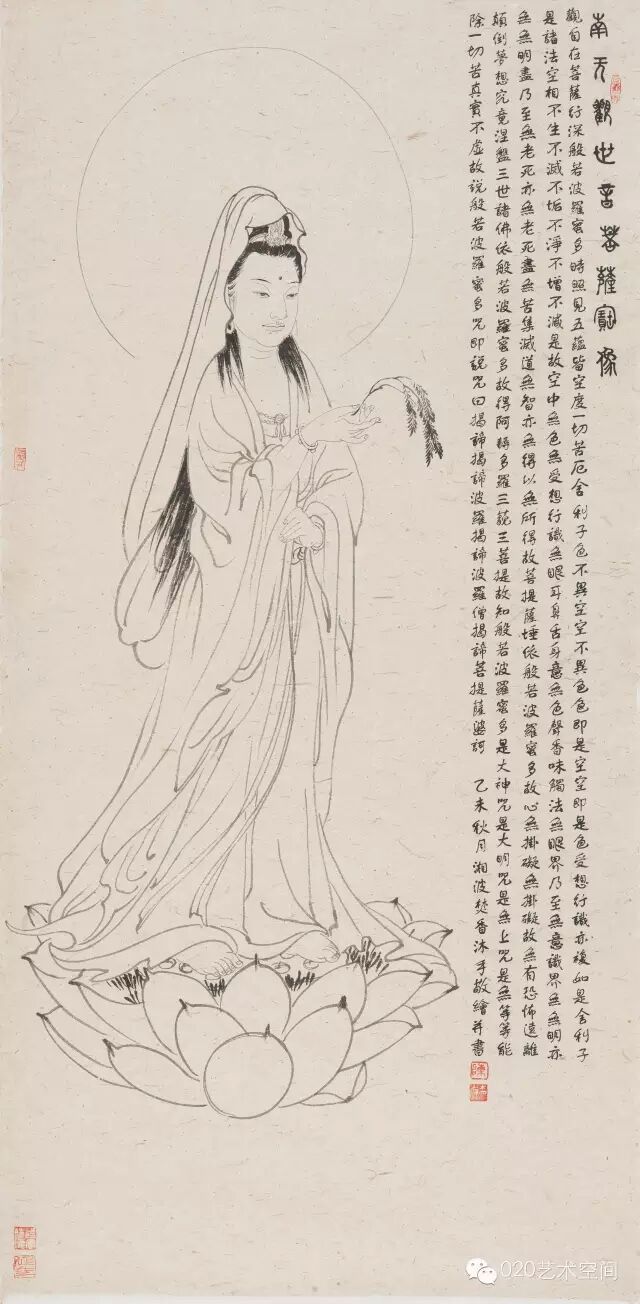 南无觀世音菩薩寶像
觀自在菩薩行深般若波羅蜜多時照見五蘊皆空度一切苦厄舍利子色不異空空不異色色即是空空即是色受想行識亦複如是舍利子
是諸法空相不生不滅不垢不淨不增不減是故空中無色無受想行識無眼耳鼻舌身意無色聲香味觸法無眼界乃至無意識界無無明亦
無無明盡乃至無老死亦無老死盡無苦集滅道無智亦無得以無所得故菩提薩埵依般若波羅蜜多故心無掛礙無掛礙故無有恐怖遠離
顛倒夢想究竟涅盤三世諸佛依般若波羅蜜多故得阿耨多羅三藐三菩提故知般若波羅蜜多是大神咒是大明咒是無上咒是無等等能
除一切苦真實不虛故說般若波羅蜜多咒即說咒曰揭諦揭諦波羅揭諦波羅僧揭諦菩提薩婆訶 乙未秋月湘波焚香沐手敬繪并書
020艺术空间